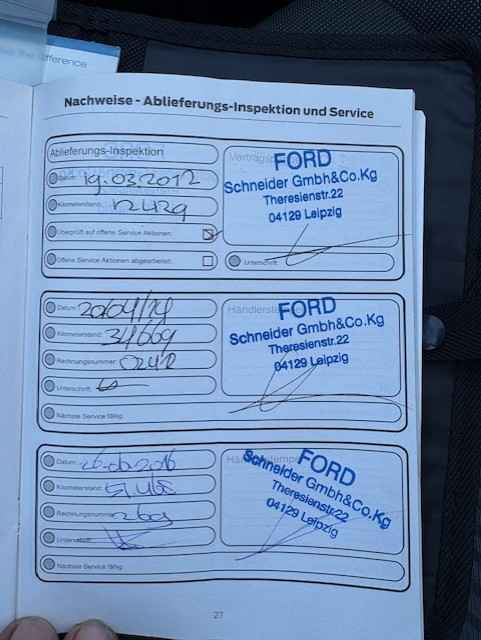 the difference
Nachweise - Ablieferungs-Inspektion und Service
Ablieferungs-Inspektion
19.03.2012
Kilometerstand: 12429
Überprüft auf offene Service Aktionen:
Offene Service Aktionen abgearbeitet:
FORD
Schneider Gmbh&Co.Kg
Theresienstr.22
04129 Leipzig
Unterschrift:
Datum:
Kilometerstand: 34669
Rechnungsnummer:
Unterschrift:
Nächste Service fällig:
FORD
Schneider Gmbh&Co.Kg
Theresienstr.22
04129 Leipzig
Datum:
Kilometerstand:
Rechnungsnummer:
Unterschrift:
Nächste Service fällig:
FORD
Schneider Gmbh&Co.Kg
Theresienstr.22
04129 Leipzig
27